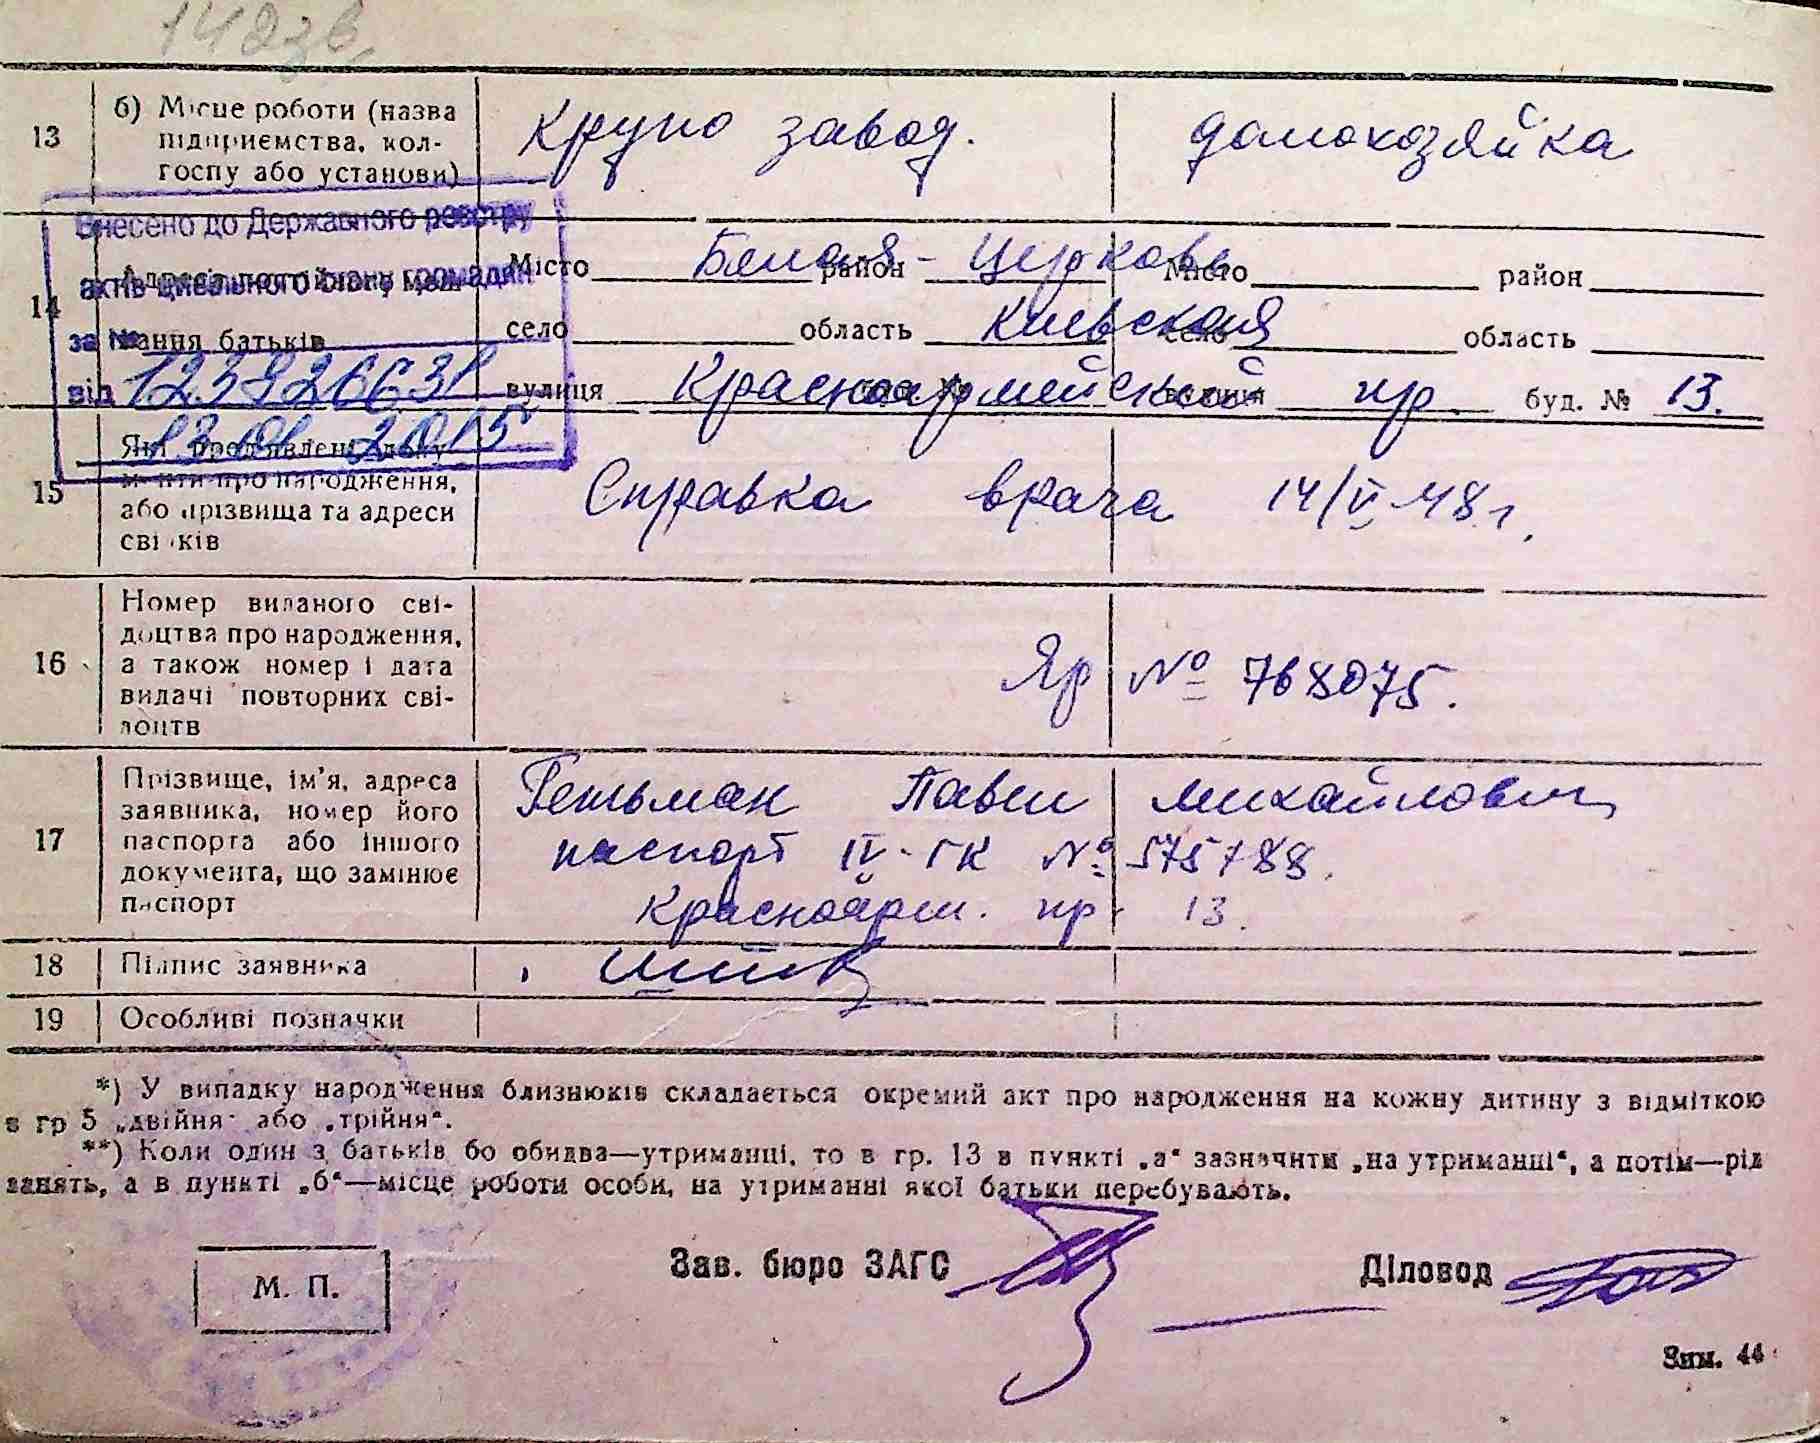 13 б) Місце роботи (назва підприємства, колгоспу або установи) Крупо завод. домохозяйка
Внесено до Державного реєстру
актів цивільного стану громадян
за №
від 13.01.2015
14 Адреса постійного мешкання батьків
Місто Белая - Церковь район Місто район
село область Киевская село область
вулиця Красноармейский вулиця пр. буд. № 13.
15 Які пред'явлені документи про народження, або прізвища та адреси свідків Справка врача 14/V-48 г.
16 Номер виданого свідоцтва про народження, а також номер і дата видачі повторних свідоцтв Яр № 768075.
17 Прізвище, ім'я, адреса заявника, номер його паспорта або іншого документа, що замінює паспорт Гетьман Павел Михайлович
паспорт IV-ГК № 575788.
Красноарм. пр. 13.
18 Підпис заявника
19 Особливі позначки
*) У випадку народження близнюків складається окремий акт про народження на кожну дитину з відміткою
в гр 5 „двійня" або „трійня".
**) Коли один з батьків бо обидва—утриманці, то в гр. 13 в пункті „а" зазначити „на утриманні", а потім—рід
занять, а в пункті „б"—місце роботи особи, на утриманні якої батьки перебувають.
М. П.
Зав. бюро ЗАГС Діловод
Зим. 44